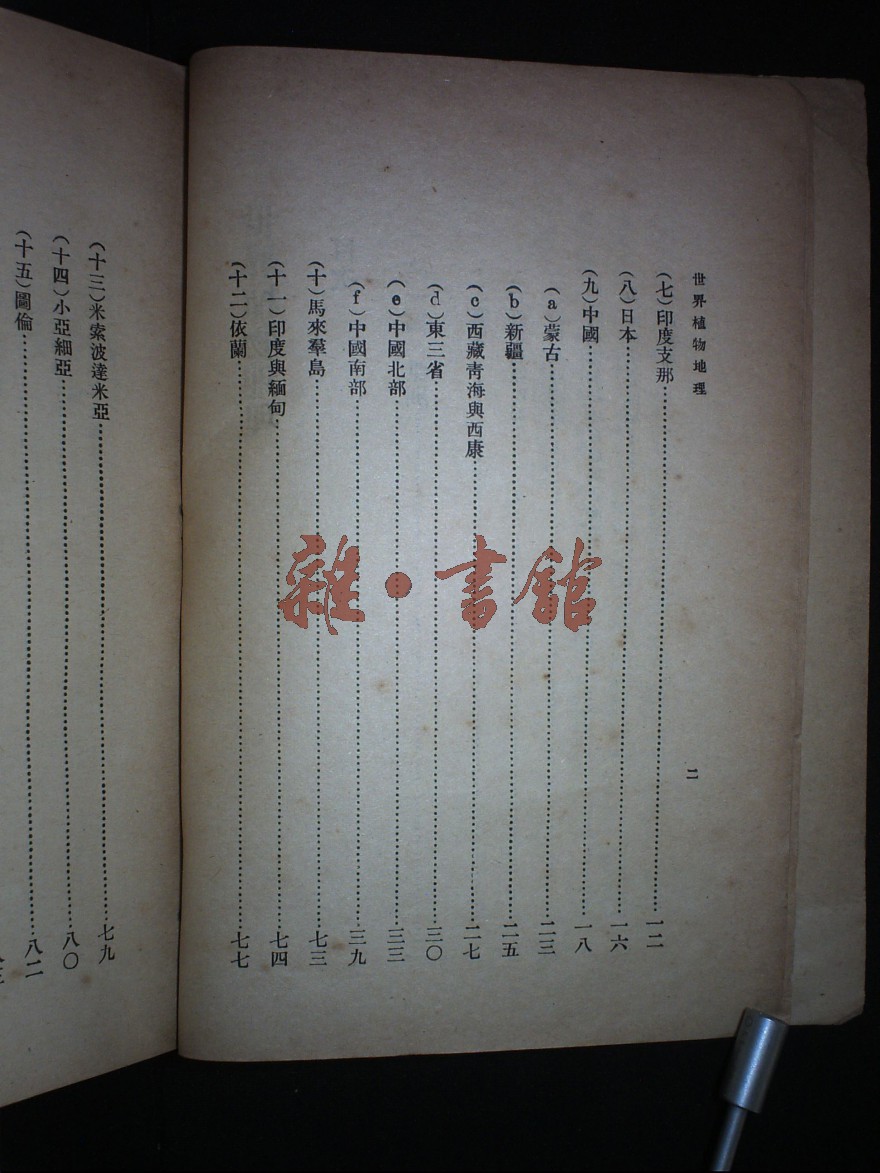 世界植物地理
二
(七)印度支那……一二
(八)日本……一六
(九)中國……一八
(a)蒙古……二三
(b)新疆……二五
(c)西藏靑海與西康……二七
(d)東三省……三〇
(e)中國北部……三三
(f)中國南部……三九
(十)馬來羣島……七三
(十一)印度與緬甸……七四
(十二)依蘭……七七
(十三)米索波達米亞……七九
(十四)小亞細亞……八〇
(十五)圖倫……八二
雜·書館